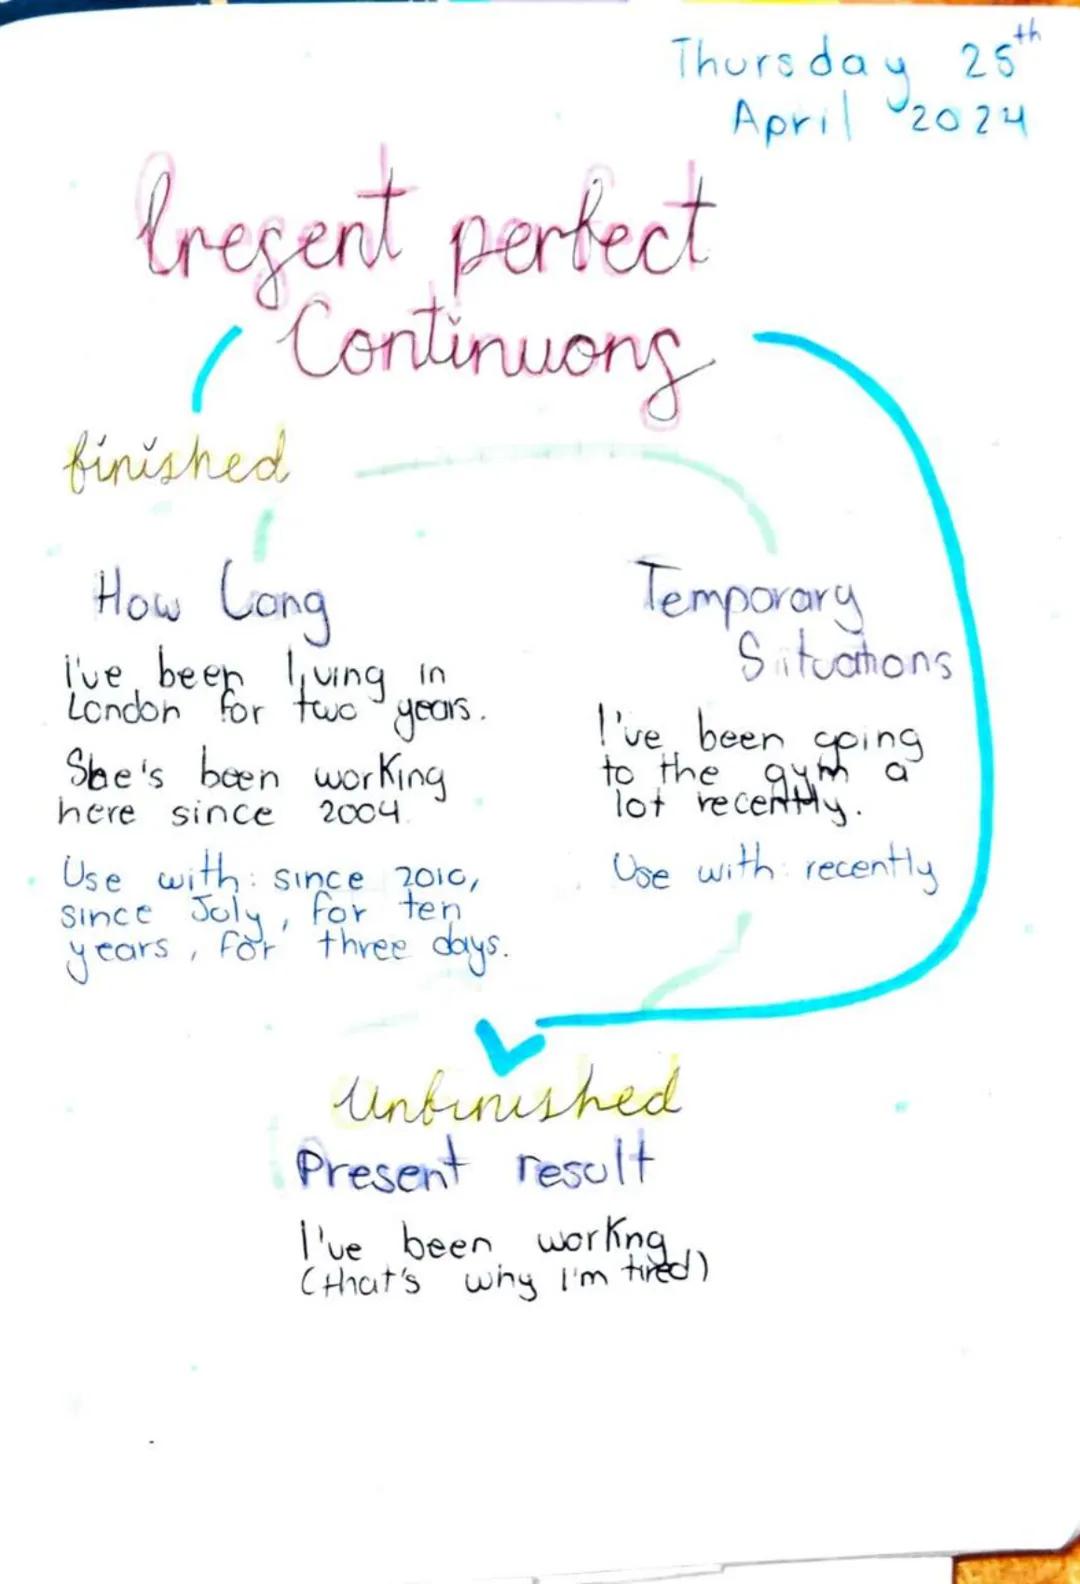 Thursday 25th
April 2024
Present perfect
Continuous
finished
How Long
I've been living in
London for two years.
She's been working
here since 2004.
Use with: since 2010,
since July, for ten
years, for three days.
Temporary
Situations
I've been going
to the gym a
lot recently.
Use with: recently
Unfinished
Present result
I've been workng
(that's why I'm tired)